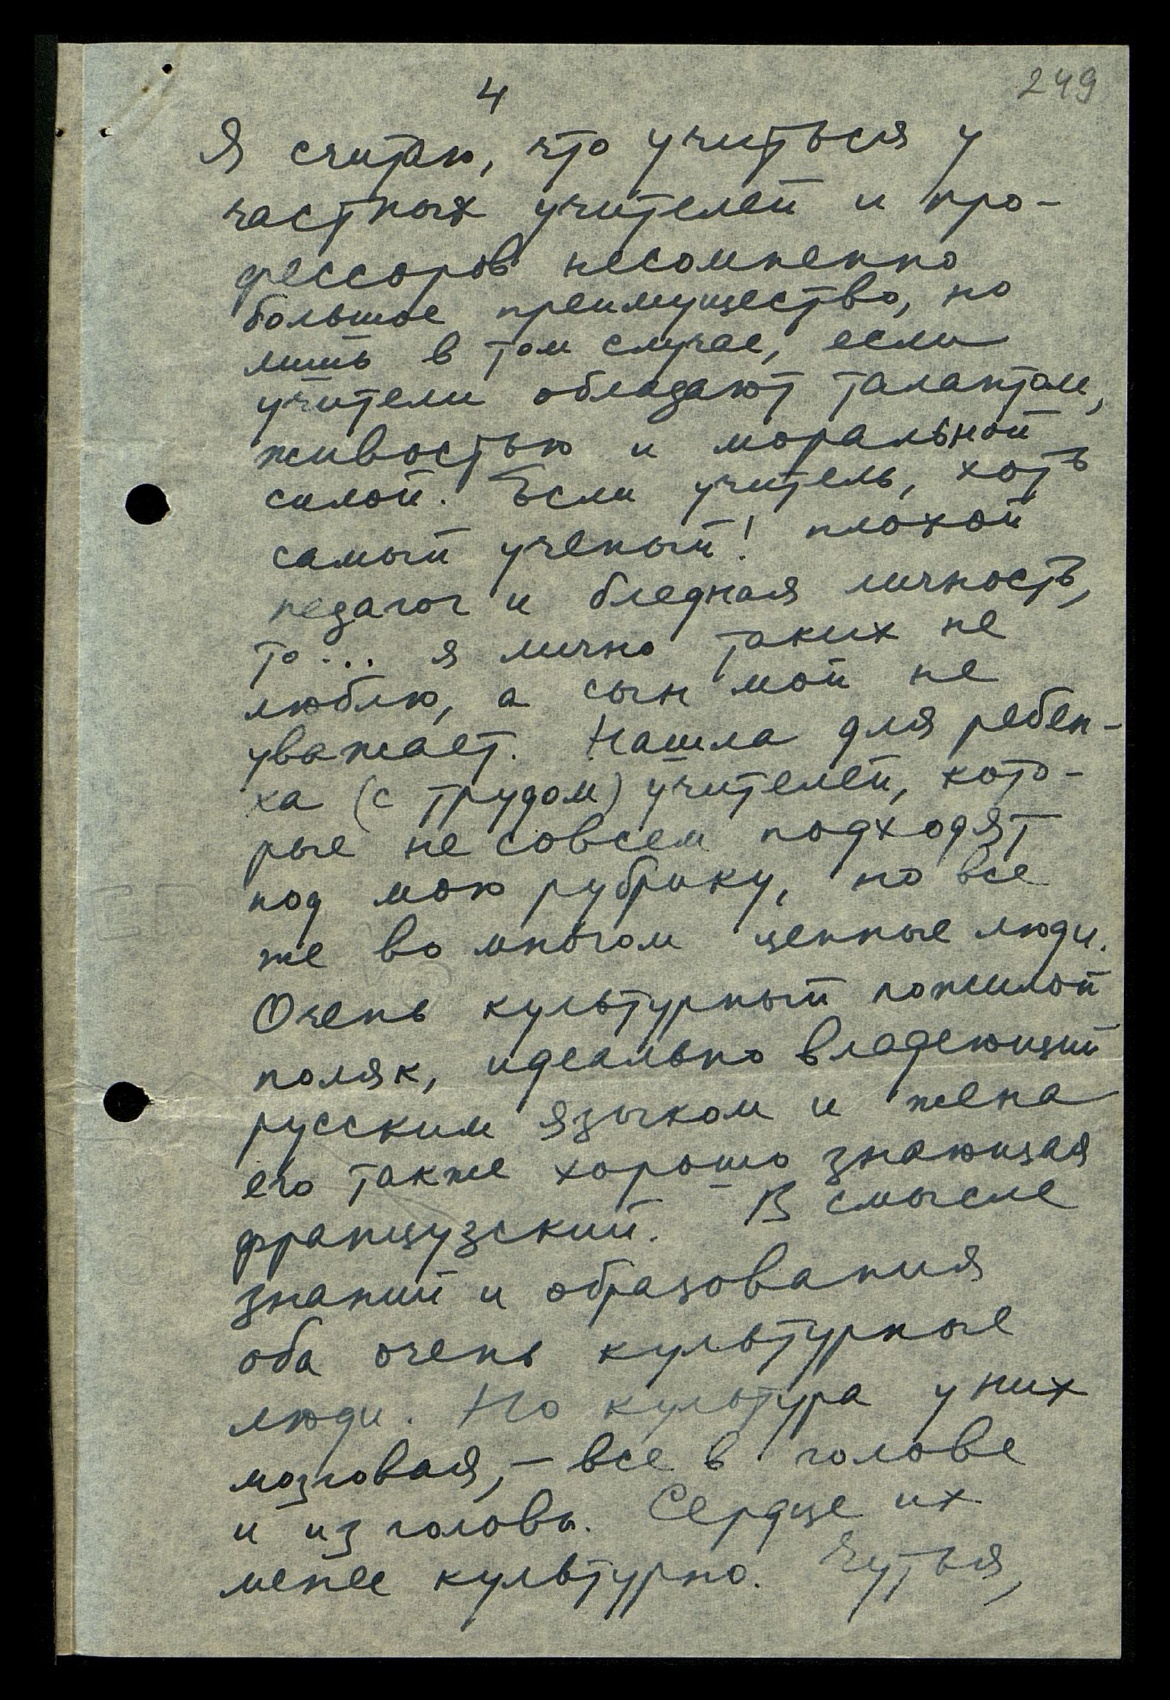 4
249
Я считаю, что учиться у
частных учителей и про-
фессоров несомненно
большое преимущество, но
лишь в том случае, если
учители обладают талантом,
живостью и моральной
силой. Если учитель, хоть
самый ученый! плохой
педагог и бледная личность,
то... я лично таких не
люблю, а сын мой не
уважает. Нашла для ребен-
ка (с трудом) учителей, кото-
рые не совсем подходят
под мою рубрику, но все
же во многом ценные люди.
Очень культурный пожилой
поляк, идеально владеющий
русским языком и жена
его также хорошо знающая
французский. В смысле
знаний и образования
оба очень культурные
люди. Но культура у них
мозговая, – все в голове
и из головы. Сердце их
менее культурно. Чутья,